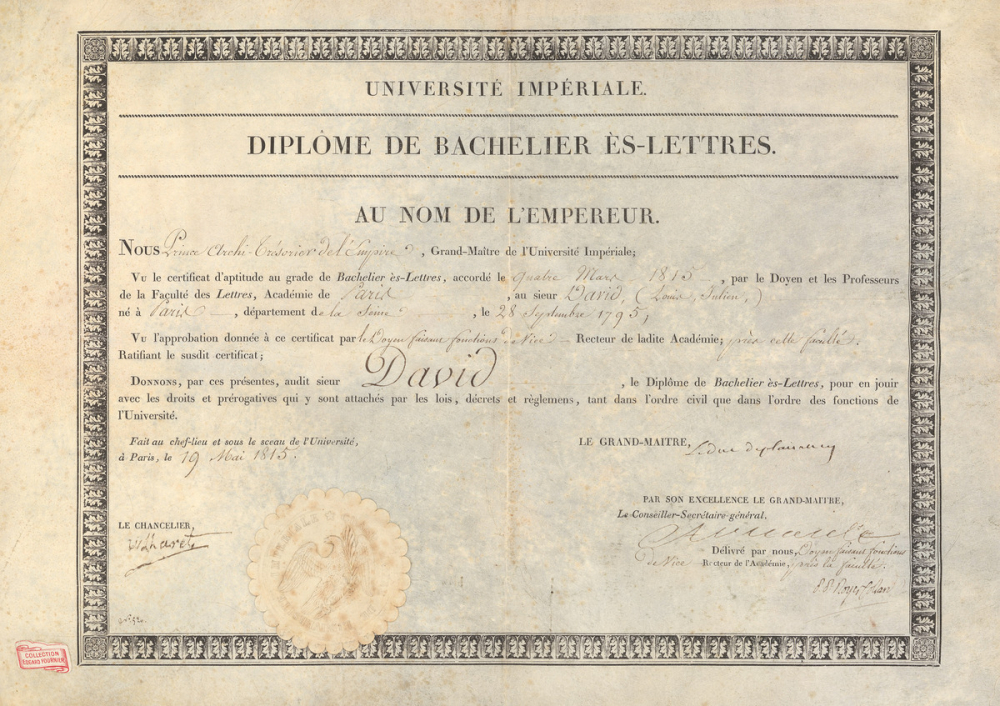 UNIVERSITÉ IMPÉRIALE.
DIPLÔME DE BACHELIER ÈS-LETTRES.
AU NOM DE L'EMPEREUR.
NOUS Prince Archi-Trésorier de l'Empire, Grand-Maître de l'Université Impériale;
VU le certificat d'aptitude au grade de Bachelier ès-Lettres, accordé le quatre Mars 1815, par le Doyen et les Professeurs
de la Faculté des Lettres, Académie de Paris, au sieur David, (Louis, Julien,)
né à Paris, département de la Seine, le 28 Septembre 1795;
VU l'approbation donnée à ce certificat par le Doyen faisant fonctions de Vice- Recteur de ladite Académie; près cette faculté.
Ratifiant le susdit certificat;
DONNONS, par ces présentes, audit sieur David, le Diplôme de Bachelier ès-Lettres, pour en jouir
avec les droits et prérogatives qui y sont attachés par les lois, décrets et règlemens, tant dans l'ordre civil que dans l'ordre des fonctions de
l'Université.
Fait au chef-lieu et sous le sceau de l'Université,
à Paris, le 19 Mai 1815.
LE GRAND-MAITRE,
le duc de plaisance
PAR SON EXCELLENCE LE GRAND-MAITRE,
Le Conseiller-Secrétaire-général,
LE CHANCELIER,
Villaret
Délivré par nous, Doyen faisant fonctions
de Vice Recteur de l'Académie, près la faculté.
COLLECTION
EDGARD FOURNIER